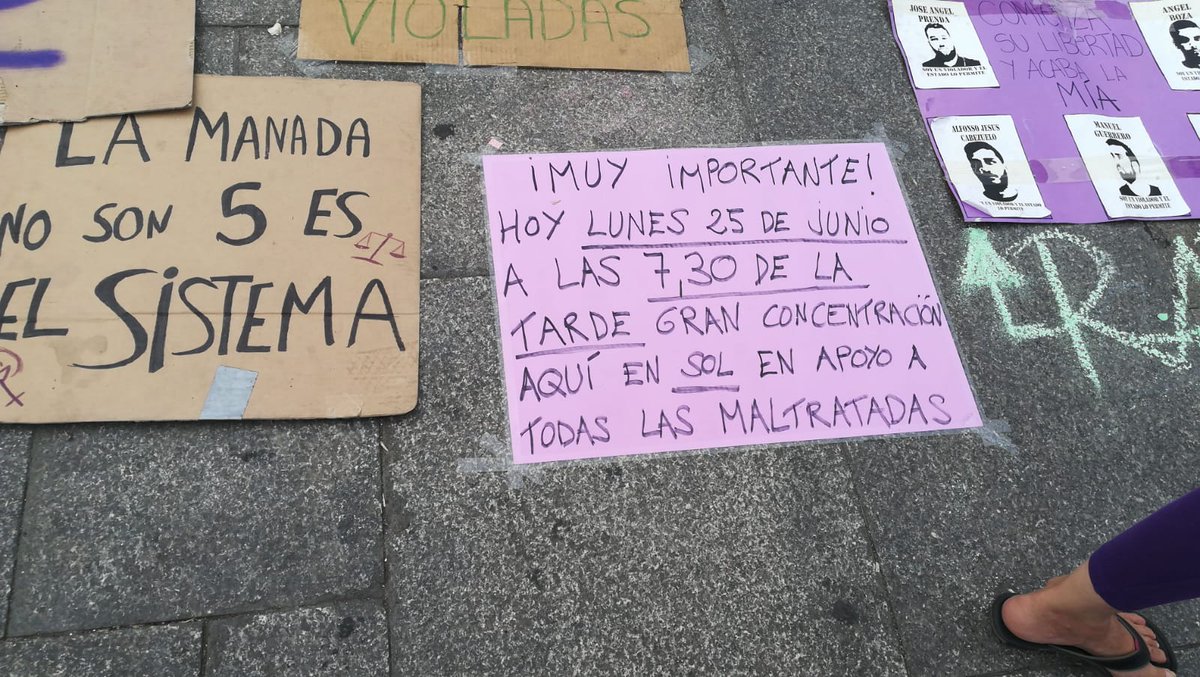 VIOLADAS
LA MANADA
NO SON 5 ES
EL SISTEMA
¡MUY IMPORTANTE!
HOY LUNES 25 DE JUNIO
A LAS 7,30 DE LA
TARDE GRAN CONCENTRACIÓN
AQUÍ EN SOL EN APOYO A
TODAS LAS MALTRATADAS
JOSE ANGEL
PRENDA
SOY UN VIOLADOR Y EL
ESTADO LO PERMITE
COMIENZA
SU LIBERTAD
Y ACABA LA
MÍA
ANGEL
BOZA
ALFONSO JESUS
CABEZUELO
Y UN VIOLADOR Y EL ESTADO
LO PERMITE
MANUEL
GUERRERO
SOY UN VIOLADOR Y EL
ESTADO LO PERMITE